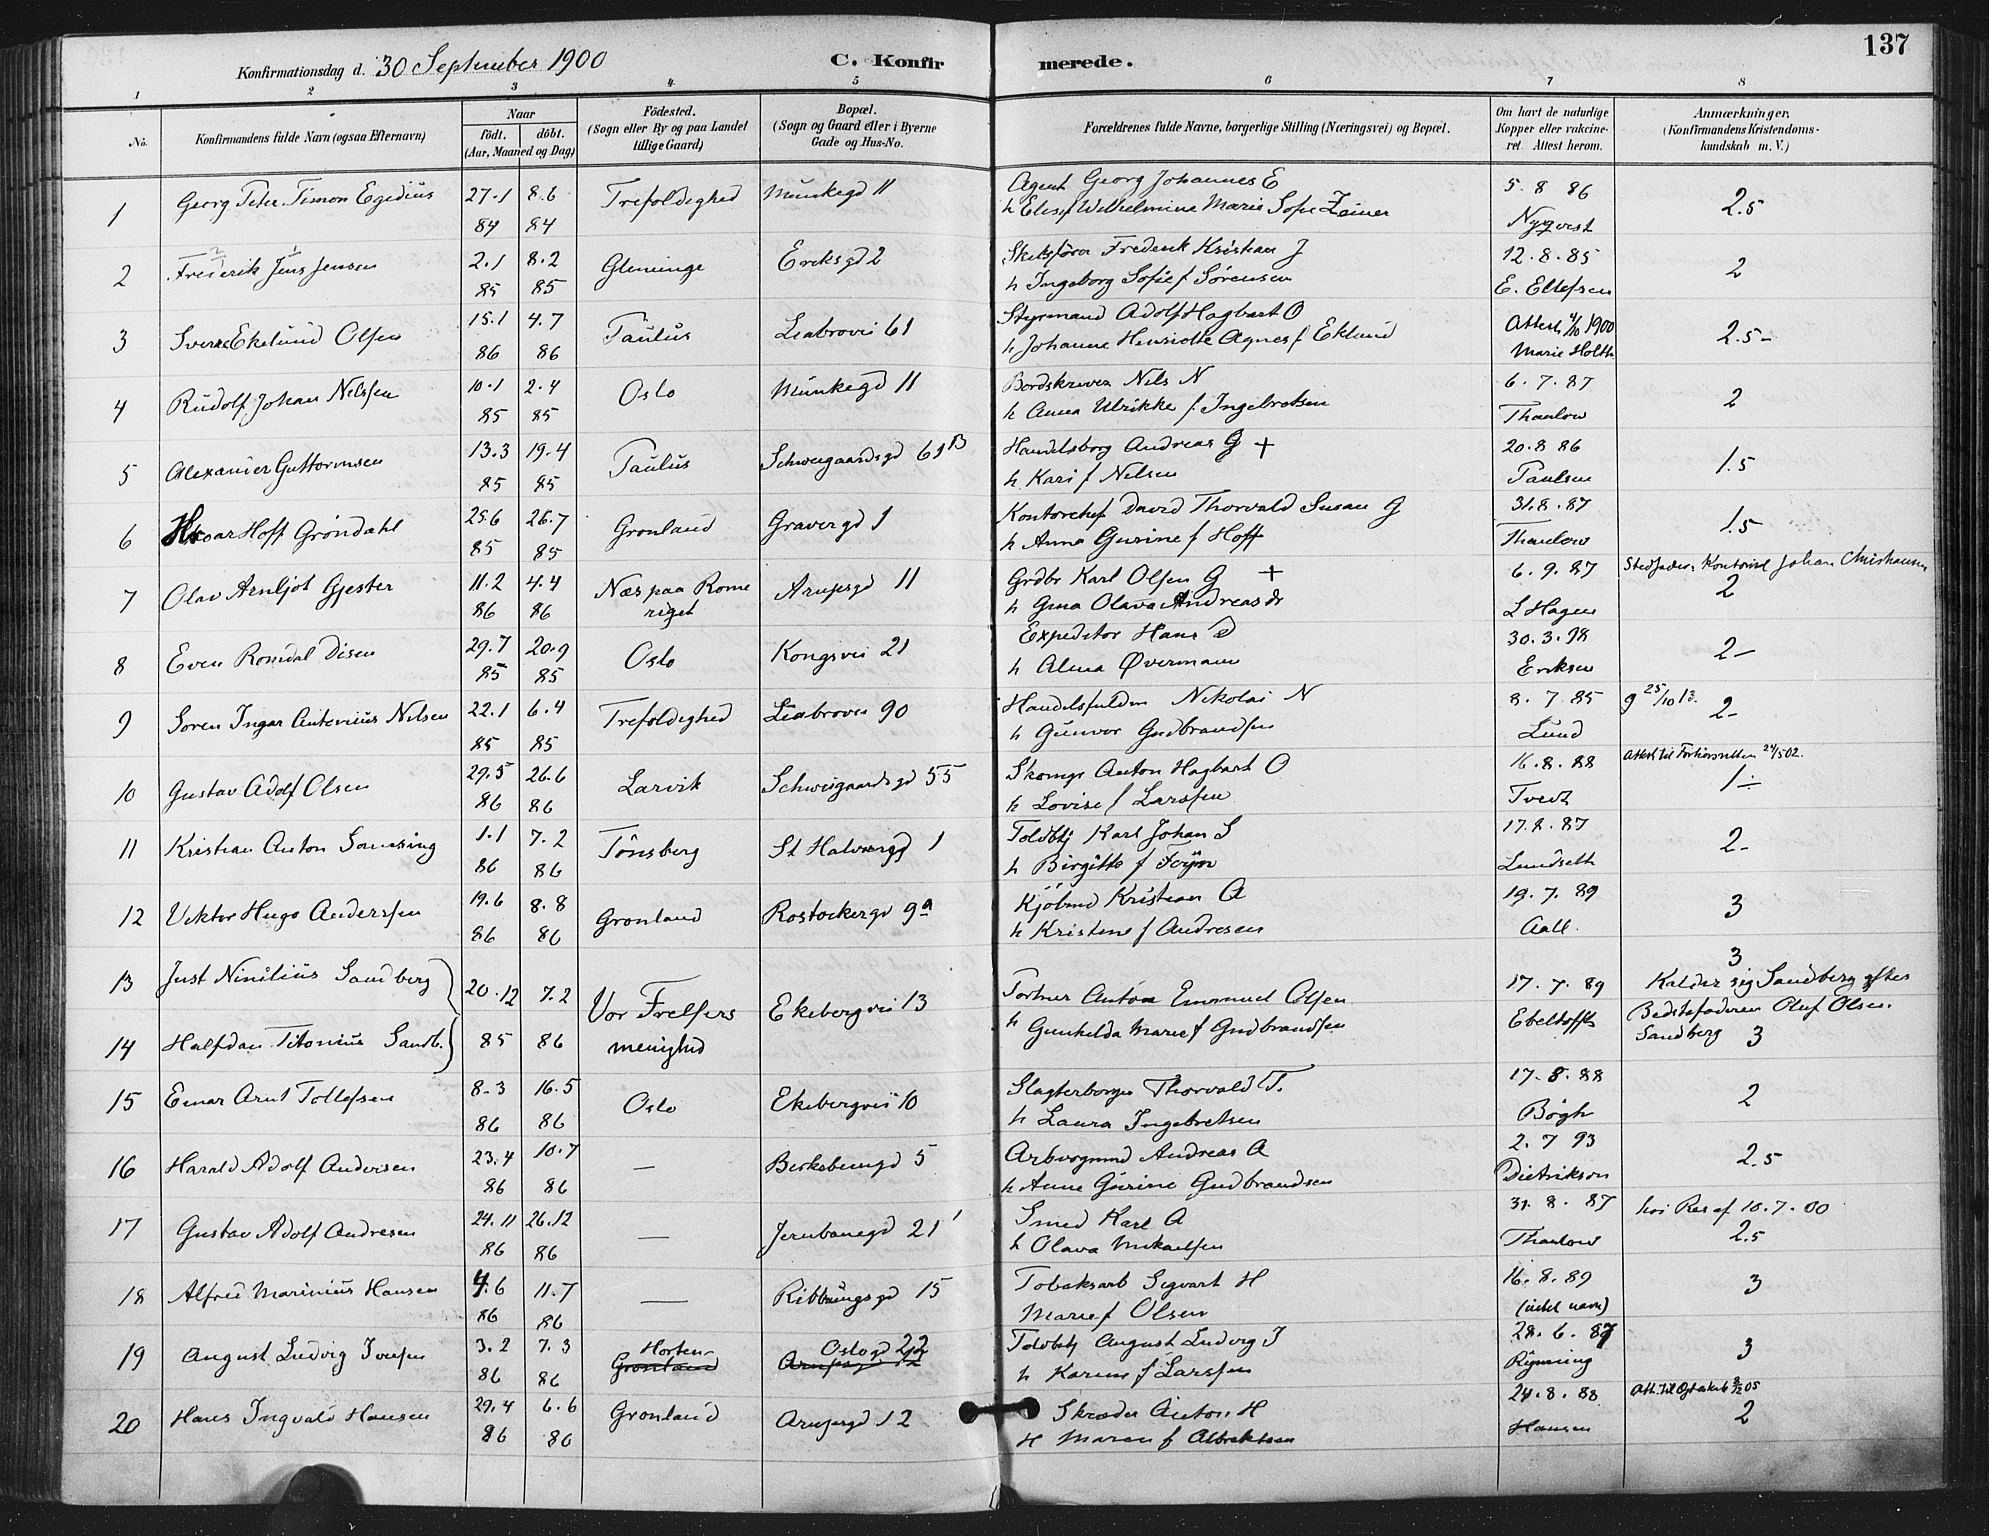 137
Konfirmationsdag d. 30 September 1900 C. Konfirmerede.
1 2 3 4 5 6 7 8
No.
Konfirmandens fulde Navn (ogsaa Efternavn)
Naar
født. døbt.
(Aar, Maaned og Dag)
Fødested.
(Sogn eller By og paa Landet
tillige Gaard)
Bopæl.
(Sogn og Gaard eller i Byerne
Gade og Hus-No.
Forældrenes fulde Navne, borgerlige Stilling (Næringsvei) og Bopæl.
Om havt de naturlige
Kopper eller vakcine-
ret. Attest herom.
Anmærkninger.
(Konfirmandens Kristendoms-
kundskab m. V.)
1 Georg Peter Timon Egedius 27.1 8.6 Trefoldighed Munkegd 11 Agent Georg Johannes E 5. 8 86 2.5
84 84 h Elise Wilhelmine Marie Sofie Zeiner Nyqvist
2 Frederik Jens Jensen 2.1 8.2 Gleninge Eriksgd 2 Skibsfører Frederik Kristian J 12.8.85 2
85 85 h Ingeborg Sofie f Sørensen E. Ellefsen
3 Sverre Ekelund Olsen 15.1 4.7 Paulus Liabrovei 61 Styrmand Adolf Hagbart O Attest 4/10 1900 2.5-
86 86 h Johanne Henriette Agnes f Eklund Marie Holth
4 Rudolf Johan Nelssen 10.1 2.4 Oslo Munkegd 11 Bordskriver Nils N 6. 7. 87 2
85 85 h Anna Ulrikke f. Ingebretsen Thaulow
5 Alexander Guttormsen 13.3 19.4 Paulus Schweigaardsgd 61 B Handelsborg Andreas G + 20.8 86 1.5
85 85 h. Kari f Nelsen Paulsen
6 Hroar Hoff Grøndahl 25.6 26.7 Grønland Gravergd 1 Kontorchef David Thorvald Susan G 31.8.87 1.5
85 85 h Anna Gurine f Hoff Thaulow
7 Olav Arnljot Gjester 11.2 4.4 Næs paa Rome Arupsgd 11 Grdbr Karl Olsen G + 6. 9. 87 Stedfader: Kontorist Johan Christiansen
86 86 riget h Gina Olava Andreasdr L Hagen 2
8 Even Romdal Disen 29.7 20.9 Oslo Kongsvei 21 Expeditor Hans D 30.3.98 2-
85 85 h Alma Øvermann Eriksen
9 Soren Ingar Antonius Nilsen 22.1 6.4 Trefoldighed Liabrovei 90 Handelsfuldm Nikolai N 8. 7. 85 g 25/10 13. 2-
85 85 h Gunvor Gudbrandsen Lund
10 Gustav Adolf Olsen 29.5 26.6 Larvik Schweigaardsgd 55 Skomgr Anton Hagbart O 16.8.88 Attest til Forhørsretten 24/5 02.
86 86 h Lovise f Larssen Tvedt 1÷
11 Kristian Anton Semsing 1.1 7.2 Tønsberg St Halvargd 1 Toldbtj Karl Johan S 17.8.87 2-
86 86 h Birgitte f Føyn Lundseth
12 Viktor Hugo Anderssen 19.6 8.8 Grønland Rostockergd 9a Kjøbmd Kristian A 19.7.89 3
86 86 h Kristine f Andresen Aall.
13 Just Ninilius Sandberg 20.12 7.2 Vor Frelsers Ekebergvei 13 Tortner Anton Emanuel Olsen 17.7.89 3 Kalder sig Sandberg efter
14 Halfdan Titonius Sandb. 85 86 menighed h Gunhilda Marie f Gudbrandsen Ebeltofft Bedstefaderen Oluf Olsen.
Sandberg 3
15 Einar Arnt Tollefsen 8.3 16.5 Oslo Ekebergvei 10 Slagterborger Thorvald T. 17.8.88 2
86 86 h Laura Ingebretsen Bøgh
16 Harald Adolf Andersen 23.4 10.7 — Birkebeingd 5 Arborgmd Andreas A 2. 7 93 2.5
86 86 h Anne Gurine Gudbrandsen Dietrikson
17 Gustav Adolf Andresen 24.11 26.12 — Jernbanegd 21 Smed Karl A 31. 8. 87 hoi Res af 10.7.00
86 86 h Olava Mikaelsen Thaulow 2.5
18 Alfred Marinius Hansen 4.6 11.7 — Ribbungsgd 15 Tobaksarb Sigvart H 16.8.89 3
86 86 Marie f Olsen (intet navn)
19 August Ludvig Iversen 3.2 7.3 Horten- Oslogd 22 Toldbtj August Ludvig I 28.6.87 3
86 86 Grønland Arupsgd 12 h Karine f Larssen Rynning
20 Hans Ingvald Hansen 29.4 6.6 Grønland Arupsgd 12 Skræder Anton H 24.8.88 2
86 86 H Maren f Albrektsen Hansen